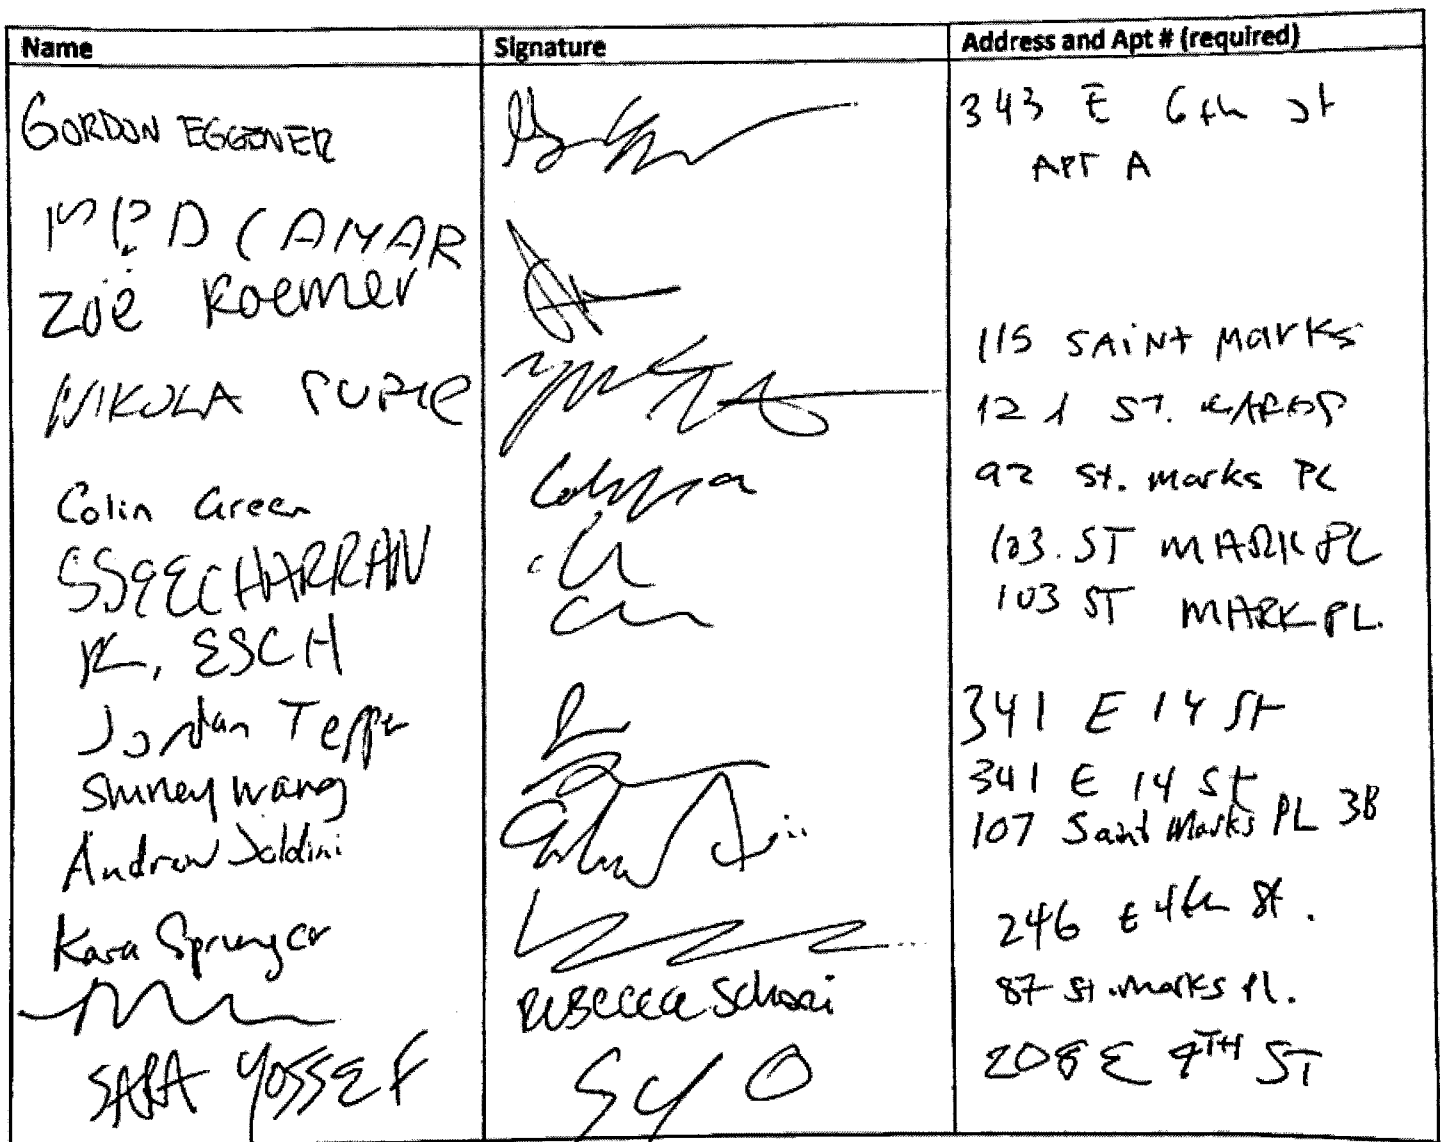 Name Signature Address and Apt # (required)
GORDON EGGENER 343 E 6th St
APT A
CAMAR
Zoë Roemer
115 SAINT MARKS
NIKOLA 121 ST.
Colin Green 92 St. Marks PL
SSEECHARRAN 103. ST MARK PL
K. ESCH 103 ST MARK PL.
Jordan Tepper 341 E 14 St
Shirley Wang 341 E 14 St
Andrew Joldini 107 Saint Marks PL 3B
Kara Sprunger 246 E 4th St.
Rebecca 87 St. Marks Pl.
SARA YOSSEF SYO 208 E 9TH ST